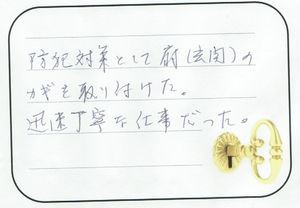 防犯対策として扉(玄関)の
カギを取り付けた。
迅速丁寧な仕事だった。